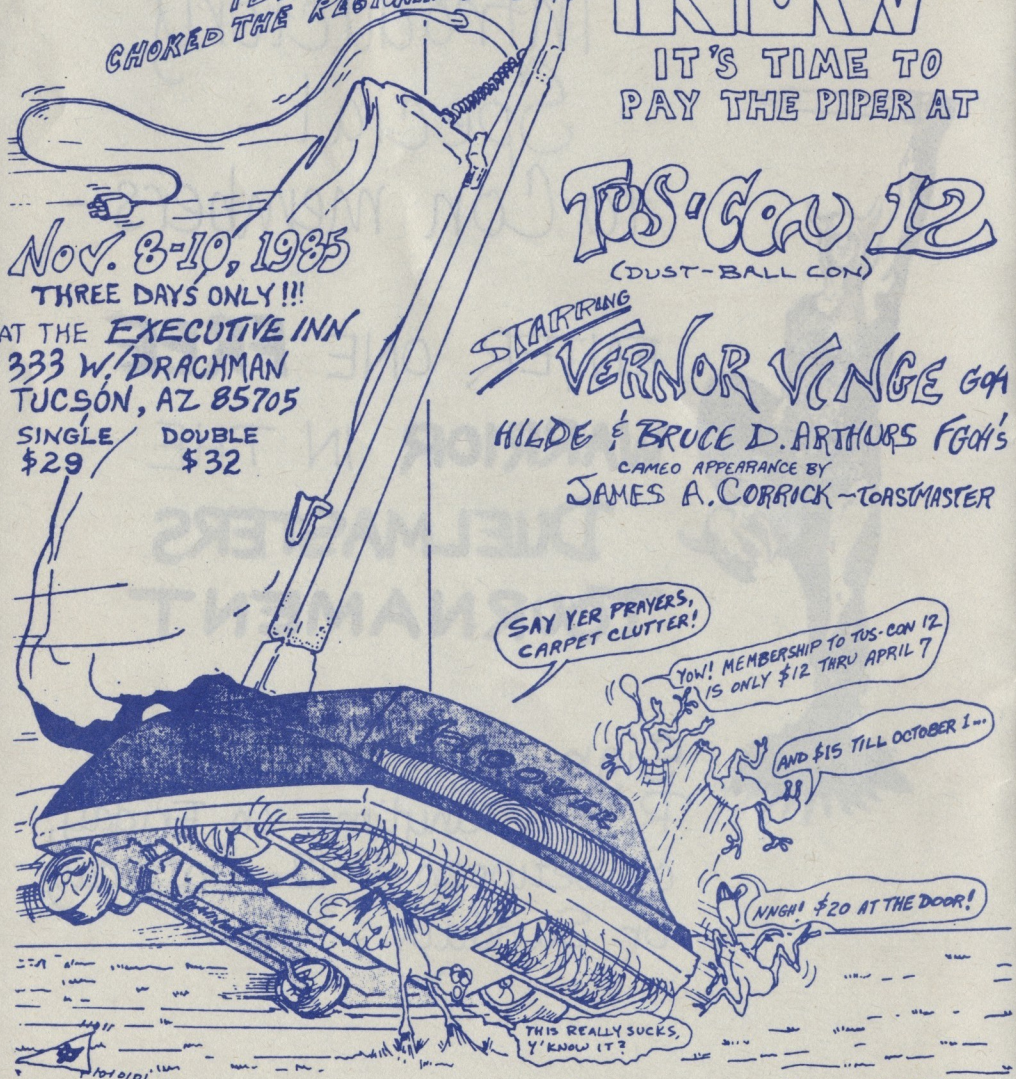 CHOKED THE
IT'S TIME TO
PAY THE PIPER AT
TUS-CON 12
(DUST-BALL CON)
NOV. 8-10, 1985
THREE DAYS ONLY!!!
AT THE EXECUTIVE INN
333 W. DRACHMAN
TUCSON, AZ 85705
SINGLE DOUBLE
$29 $32
STARRING
VERNOR VINGE GOH
HILDE & BRUCE D. ARTHURS FGOH'S
CAMEO APPEARANCE BY
JAMES A. CORRICK ~ TOASTMASTER
SAY YER PRAYERS,
CARPET CLUTTER!
YOW! MEMBERSHIP TO TUS-CON 12
IS ONLY $12 THRU APRIL 7
AND $15 TILL OCTOBER 1...
HOOVER
NNGH! $20 AT THE DOOR!
THIS REALLY SUCKS,
Y'KNOW IT?